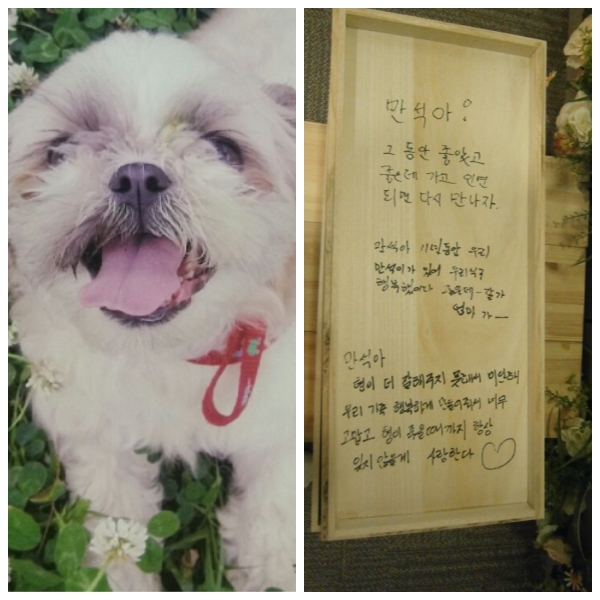 만석아!
그동안 좋았고
좋은데 가고 인연
되면 다시 만나자.
만석아 11년동안 우리
만석이가 있어 우리식구
행복했었다 좋은데-갈가
엄마 가—
만석아
형이 더 잘해주지 못해서 미안하니
우리 가족 행복하게 만들어줘서 너무
고맙고 형이 죽을때까지 항상
잊지 않을게 사랑한다 ♡